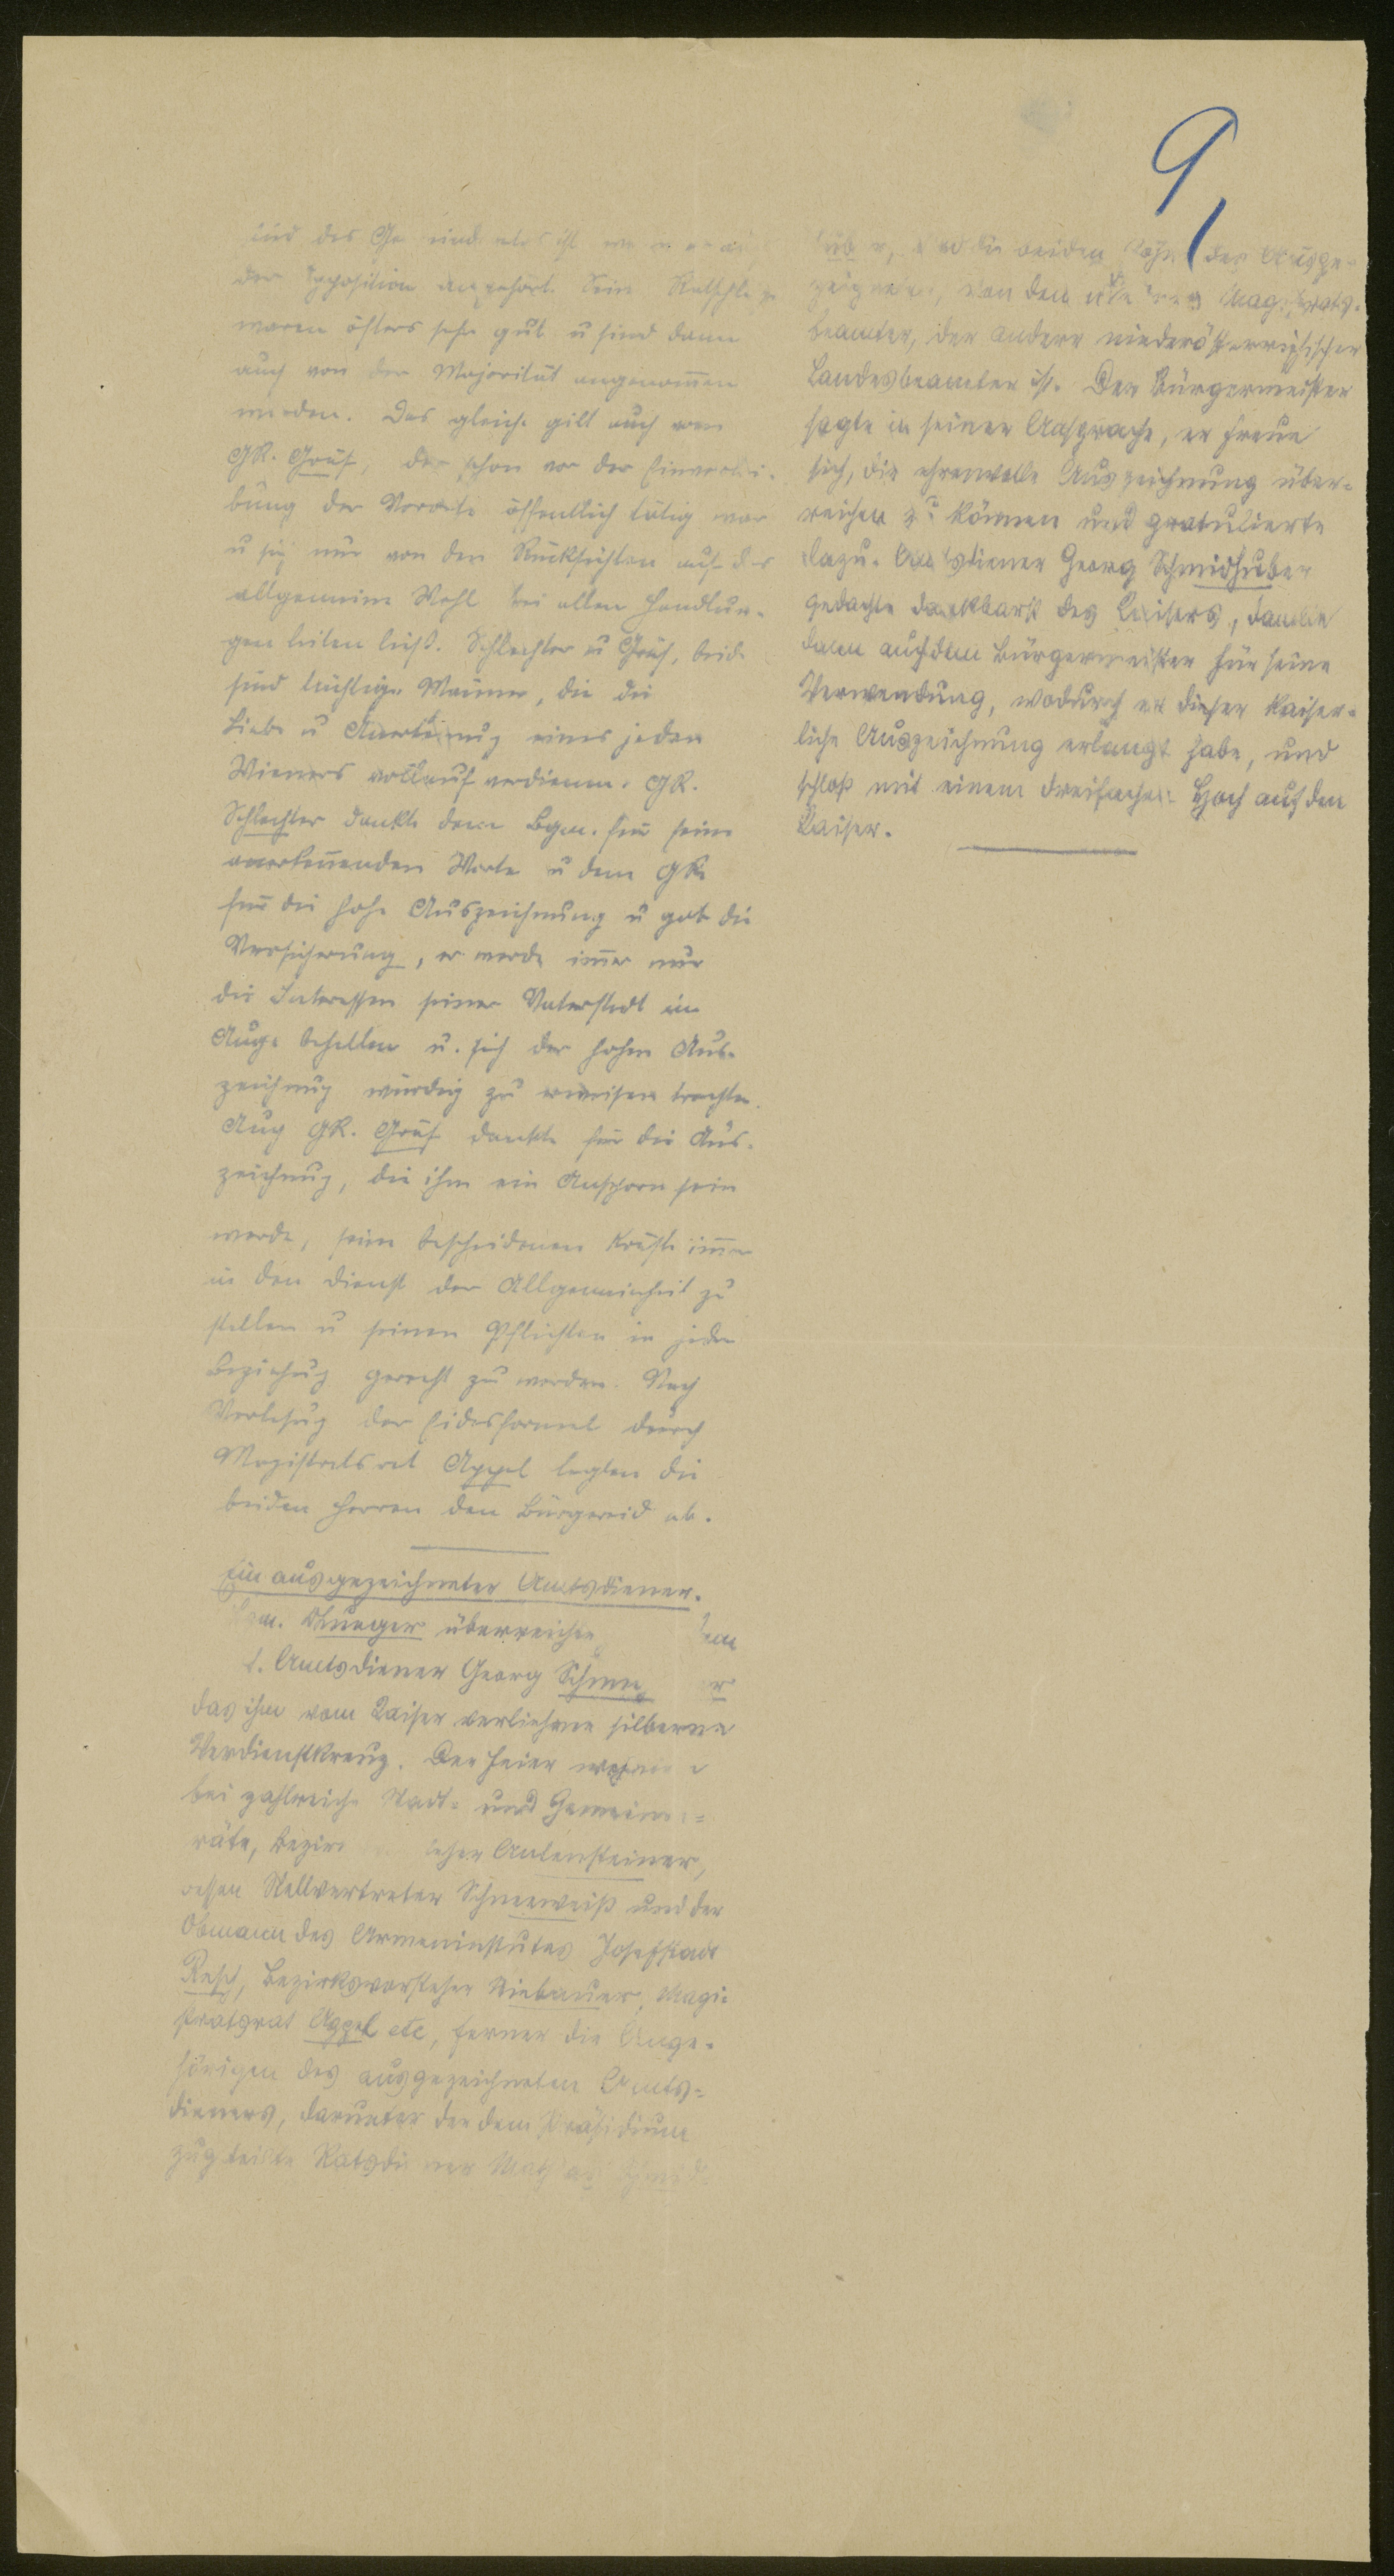 9,
und des Gemeinderates ist, wenn er auch
der Opposition angehört. Seine Ratschläge
waren öfters sehr gut u sind dann
auch von der Majorität angenommen
worden. Das gleiche gilt auch vom
GR. Gräf, der schon vor der Einverlei-
bung der Vororte öffentlich tätig war
u sich nur von den Rücksichten auf das
allgemeine Wohl bei allen Handlun-
gen leiten ließ. Schlechter u Gräf, beide
sind tüchtige Männer, die die
Liebe u Anerkennung eines jeden
Wieners vollauf verdienen. GR.
Schlechter dankte dem Bgm. für seine
anerkennenden Worte u dem GR
für die hohe Auszeichnung u gab die
Versicherung, er werde immer nur
die Interessen seiner Vaterstadt im
Auge behalten u. sich der hohen Aus-
zeichnung würdig zu erweisen trachten.
Auch GR. Gräf dankte für die Aus-
zeichnung, die ihm ein Ansporn sein
werde, seine bescheidenen Kräfte immer
in den Dienst der Allgemeinheit zu
stellen u seinen Pflichten in jeder
Beziehung gerecht zu werden. Nach
Verlesung der Eidesformel durch
Magistratsrat Appel legten die
beiden Herren den Bürgereid ab.
Ein ausgezeichneter Amtsdiener.
Bgm. Lueger überreichte dem
Amtsdiener Georg
das ihm vom Kaiser verliehene silberne
Verdienstkreuz. Der Feier wohnten
bei zahlreiche Stadt- und Gemeinde-
räte, Bezirksvorsteher
dessen Stellvertreter Schneeweiß und der
Obmann des Armeninstitutes Josefstadt
Resch, Bezirksvorsteher Stiebauer, Magi-
stratsrat Appel etc, ferner die Ange-
hörigen des ausgezeichneten Amts-
dieners, darunter der dem Präsidium
zugeteilte Ratsdiener
huber, und die beiden Söhne des Ausge-
zeichneten, von denen der eine Magistrats-
beamter, der andere niederösterreichischer
Landesbeamter ist. Der Bürgermeister
sagte in seiner Ansprache, er freue
sich, die ehrenvolle Auszeichnung über-
reichen zu können und gratulierte
dazu. Amtsdiener Georg Schmidhuber
gedachte dankbarst des Kaisers, dankte
dann auch dem Bürgermeister für seine
Verwendung, wodurch er diese kaiser-
liche Auszeichnung erlangt habe, und
schloß mit einem dreifachen Hoch auf den
Kaiser.